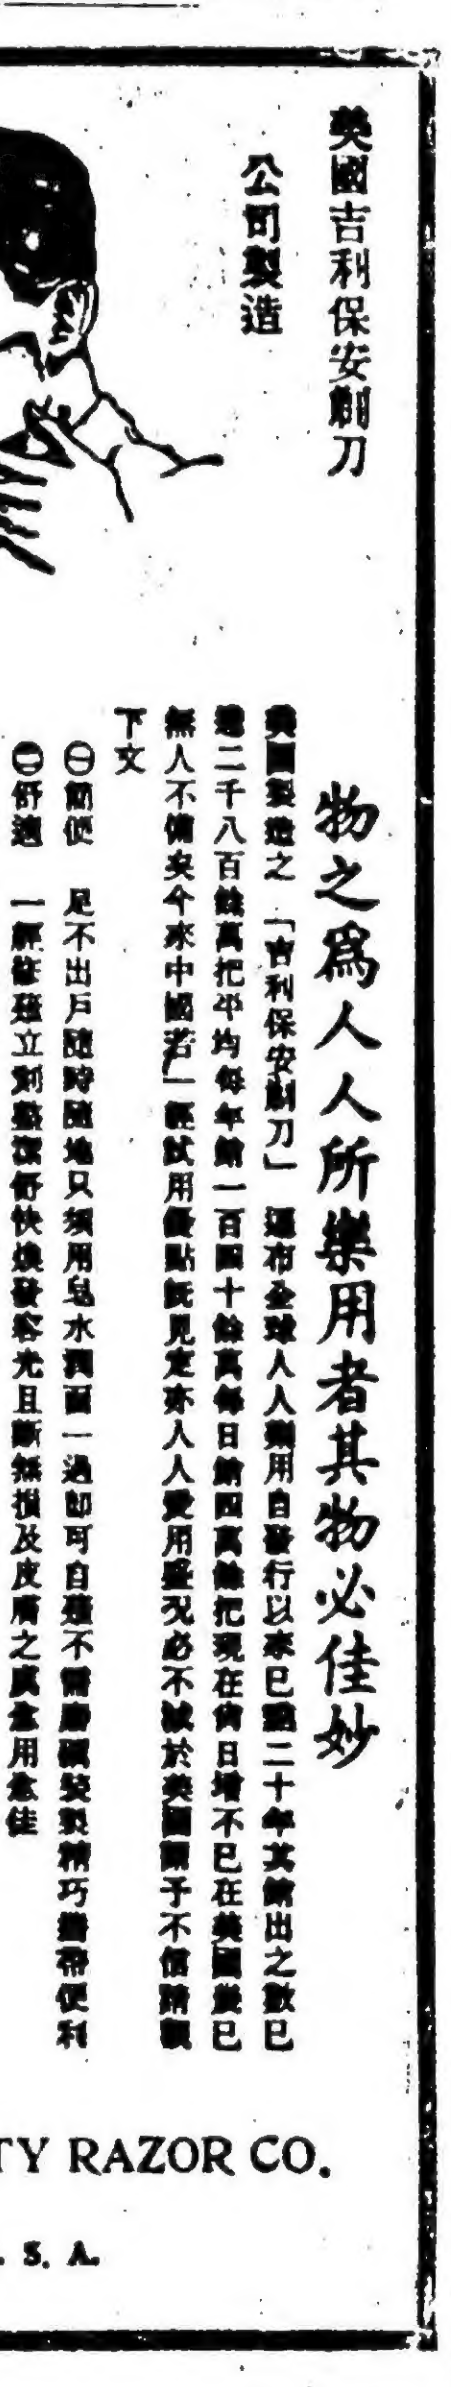 美國吉利保安剃刀
公司製造
物之爲人人所樂用者其物必佳妙
美國製造之「吉利保安剃刀」遍布全球人人樂用自發行以來已逾二十年其銷出之數已
達二千八百餘萬把平均每年銷一百四十餘萬每日銷四萬餘把現在尙日增不已在美國幾已
無人不備矣今來中國若一經試用優點旣見定亦人人愛用盛况必不減於美國謂予不信請觀
下文
㊀簡便 足不出戶隨時隨地只須用皂水潤面一過卽可自薙不需磨礪裝製精巧攜帶便利
㊁舒適 一經修薙立刻整潔舒快煥發容光且斷無損及皮膚之虞愈用愈佳
TY RAZOR CO.
. S. A.